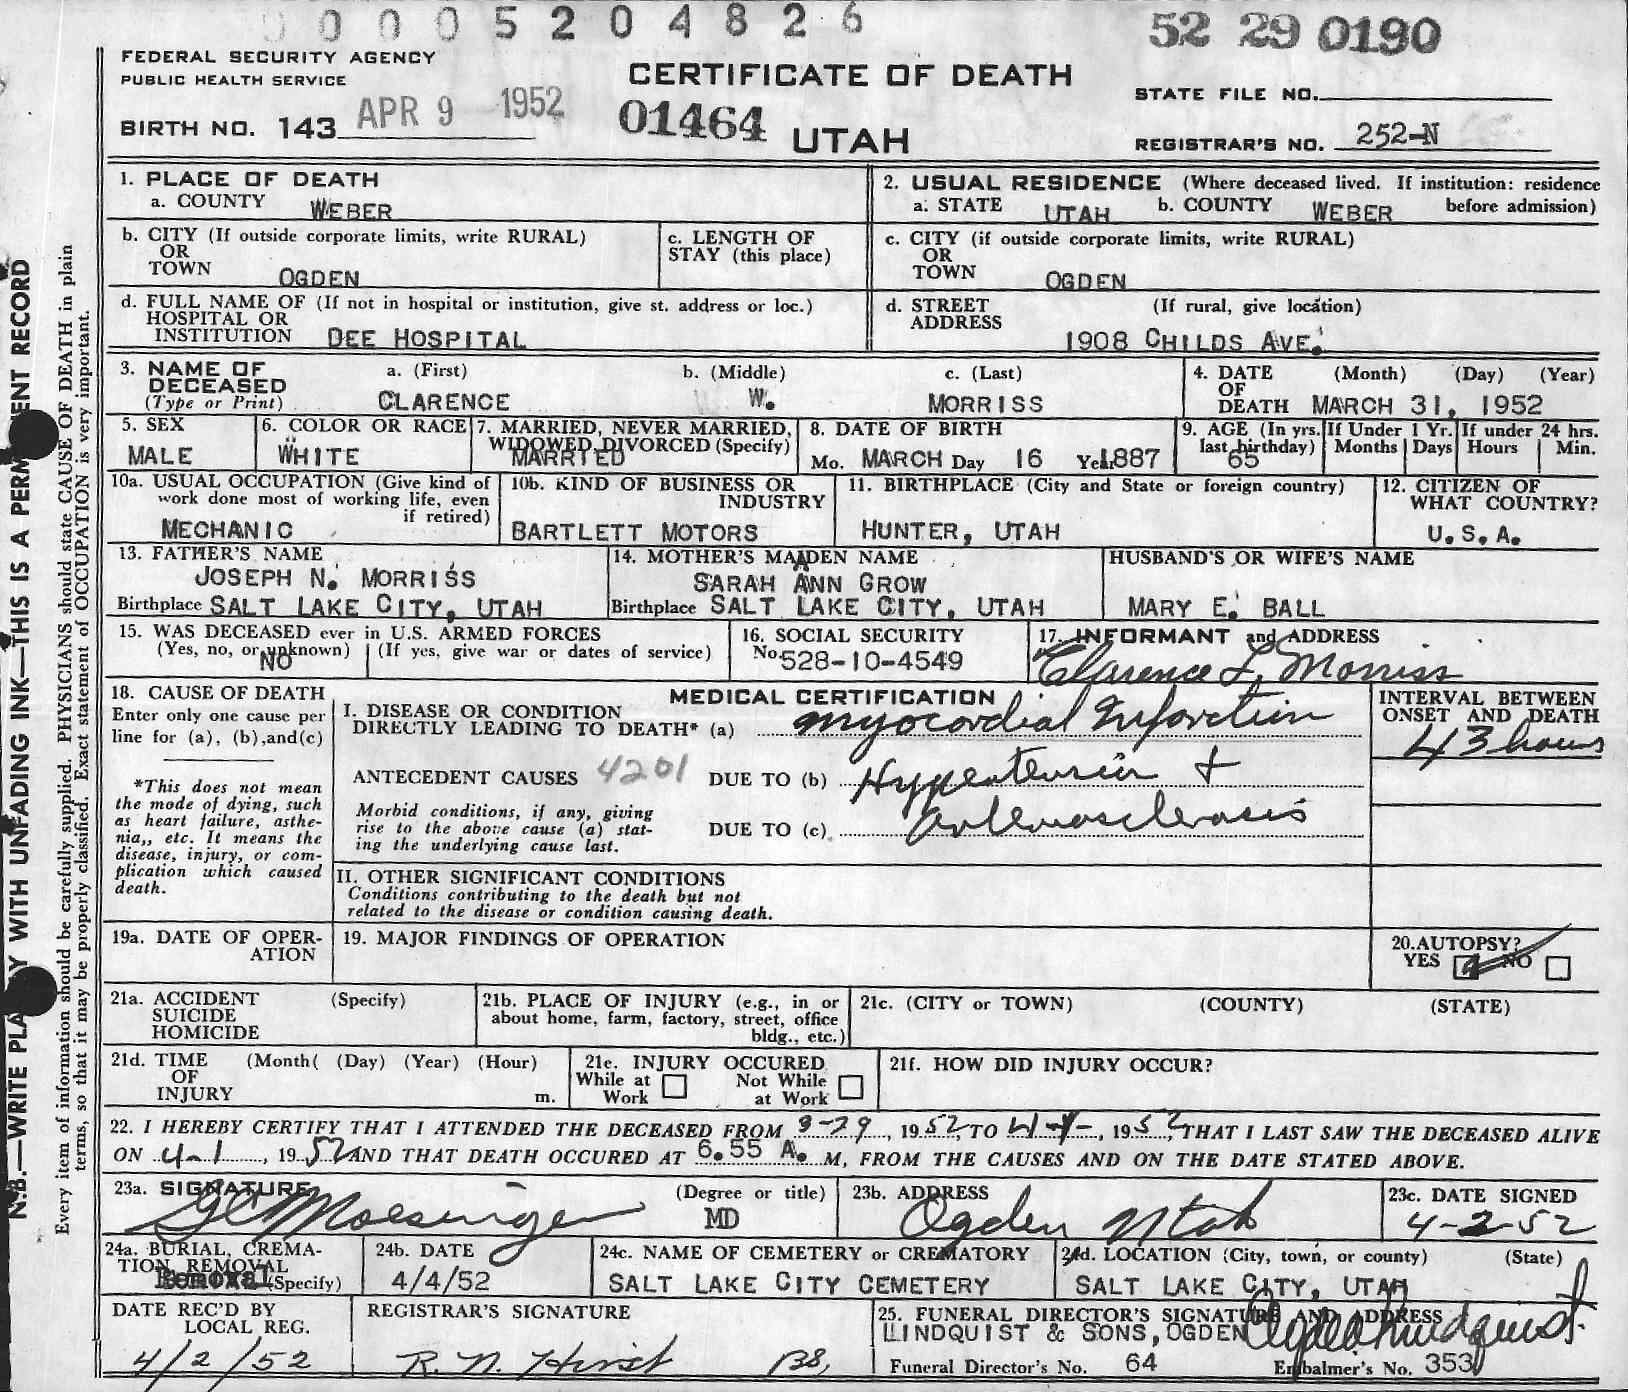 0 0 0 5 2 0 4 8 2 6
52 29 0190
FEDERAL SECURITY AGENCY
PUBLIC HEALTH SERVICE
CERTIFICATE OF DEATH
STATE FILE NO.
BIRTH NO. 143 APR 9 1952
01464 UTAH
REGISTRAR'S NO. 252-N
1. PLACE OF DEATH
a. COUNTY WEBER
2. USUAL RESIDENCE (Where deceased lived. If institution: residence before admission)
a. STATE UTAH b. COUNTY WEBER
b. CITY (If outside corporate limits, write RURAL)
OR
TOWN OGDEN
c. LENGTH OF
STAY (this place)
c. CITY (if outside corporate limits, write RURAL)
OR
TOWN OGDEN
d. FULL NAME OF (If not in hospital or institution, give st. address or loc.)
HOSPITAL OR
INSTITUTION DEE HOSPITAL
d. STREET (If rural, give location)
ADDRESS 1908 CHILDS AVE.
3. NAME OF DECEASED (Type or Print)
a. (First) CLARENCE
b. (Middle) W.
c. (Last) MORRISS
4. DATE OF DEATH (Month) (Day) (Year)
MARCH 31, 1952
5. SEX
MALE
6. COLOR OR RACE
WHITE
7. MARRIED, NEVER MARRIED,
WIDOWED, DIVORCED (Specify)
MARRIED
8. DATE OF BIRTH
Mo. MARCH Day 16 Year 1887
9. AGE (In yrs. last birthday)
65
If Under 1 Yr.
Months Days
If under 24 hrs.
Hours Min.
10a. USUAL OCCUPATION (Give kind of
work done most of working life, even
if retired)
MECHANIC
10b. KIND OF BUSINESS OR
INDUSTRY
BARTLETT MOTORS
11. BIRTHPLACE (City and State or foreign country)
HUNTER, UTAH
12. CITIZEN OF
WHAT COUNTRY?
U.S.A.
13. FATHER'S NAME
JOSEPH N. MORRISS
Birthplace SALT LAKE CITY, UTAH
14. MOTHER'S MAIDEN NAME
SARAH ANN GROW
Birthplace SALT LAKE CITY, UTAH
HUSBAND'S OR WIFE'S NAME
MARY E. BALL
15. WAS DECEASED ever in U.S. ARMED FORCES
(Yes, no, or unknown) (If yes, give war or dates of service)
NO
16. SOCIAL SECURITY
No. 528-10-4549
17. INFORMANT and ADDRESS
Clarence L. Morriss
18. CAUSE OF DEATH
Enter only one cause per
line for (a), (b), and (c)
*This does not mean
the mode of dying, such
as heart failure, asthe-
nia,, etc. It means the
disease, injury, or com-
plication which caused
death.
MEDICAL CERTIFICATION
I. DISEASE OR CONDITION
DIRECTLY LEADING TO DEATH* (a) Myocordial Infarction
ANTECEDENT CAUSES 4201 DUE TO (b) Hypertension +
Morbid conditions, if any, giving
rise to the above cause (a) stat-
ing the underlying cause last.
DUE TO (c) arteriosclerosis
INTERVAL BETWEEN
ONSET AND DEATH
43 hours
II. OTHER SIGNIFICANT CONDITIONS
Conditions contributing to the death but not
related to the disease or condition causing death.
19a. DATE OF OPER-
ATION
19. MAJOR FINDINGS OF OPERATION
20. AUTOPSY?
YES NO
21a. ACCIDENT (Specify)
SUICIDE
HOMICIDE
21b. PLACE OF INJURY (e.g., in or
about home, farm, factory, street, office
bldg., etc.)
21c. (CITY or TOWN) (COUNTY) (STATE)
21d. TIME (Month( (Day) (Year) (Hour)
OF
INJURY m.
21e. INJURY OCCURED
While at Work Not While at Work
21f. HOW DID INJURY OCCUR?
22. I HEREBY CERTIFY THAT I ATTENDED THE DECEASED FROM 3-29, 1952, TO 4-1-, 1952, THAT I LAST SAW THE DECEASED ALIVE
ON 4-1, 1952 AND THAT DEATH OCCURED AT 6.55 A. M, FROM THE CAUSES AND ON THE DATE STATED ABOVE.
23a. SIGNATURE (Degree or title)
Moesinger MD
23b. ADDRESS
Ogden Utah
23c. DATE SIGNED
4-2-52
24a. BURIAL, CREMA-
TION, REMOVAL
Removal (Specify)
24b. DATE
4/4/52
24c. NAME OF CEMETERY or CREMATORY
SALT LAKE CITY CEMETERY
24d. LOCATION (City, town, or county) (State)
SALT LAKE CITY, UTAH
DATE REC'D BY
LOCAL REG.
4/2/52
REGISTRAR'S SIGNATURE
R. N. Hirst
25. FUNERAL DIRECTOR'S SIGNATURE AND ADDRESS
LINDQUIST & SONS, OGDEN
Funeral Director's No. 64 Embalmer's No. 353
N.B.—WRITE PLAINLY WITH UNFADING INK—THIS IS A PERMANENT RECORD
Every item of information should be carefully supplied. PHYSICIANS should state CAUSE OF DEATH in plain
terms, so that it may be properly classified. Exact statement of OCCUPATION is very important.